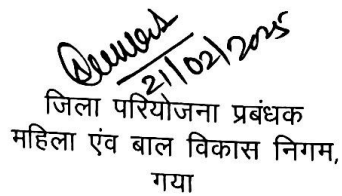 21/02/2025
जिला परियोजना प्रबंधक
महिला एंव बाल विकास निगम,
गया